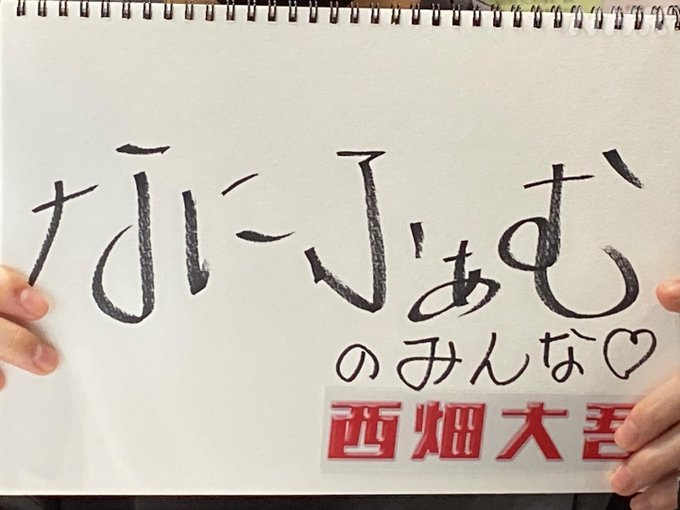 なにふぁむ
のみんな♡
西畑大吾